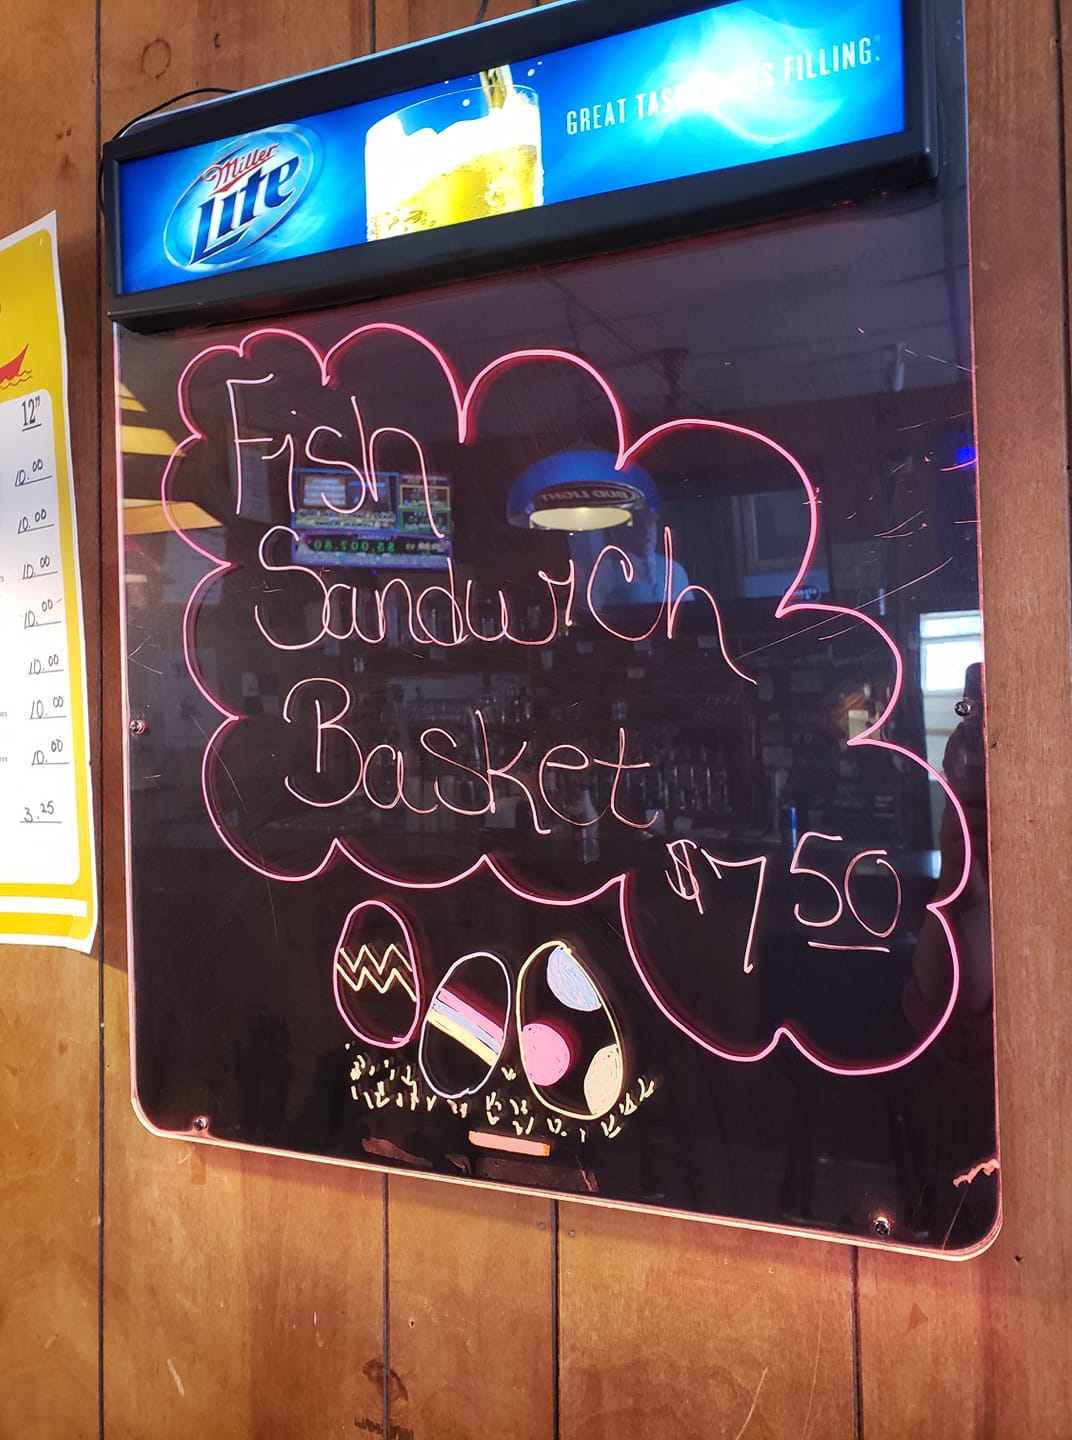 Miller
Lite
GREAT TAS   SS FILLING.
Fish
Sandwich
Basket
$7 50
BUD LIGHT
12"
10.00
10.00
10.00
10.00
10.00
10.00
10.00
3.25